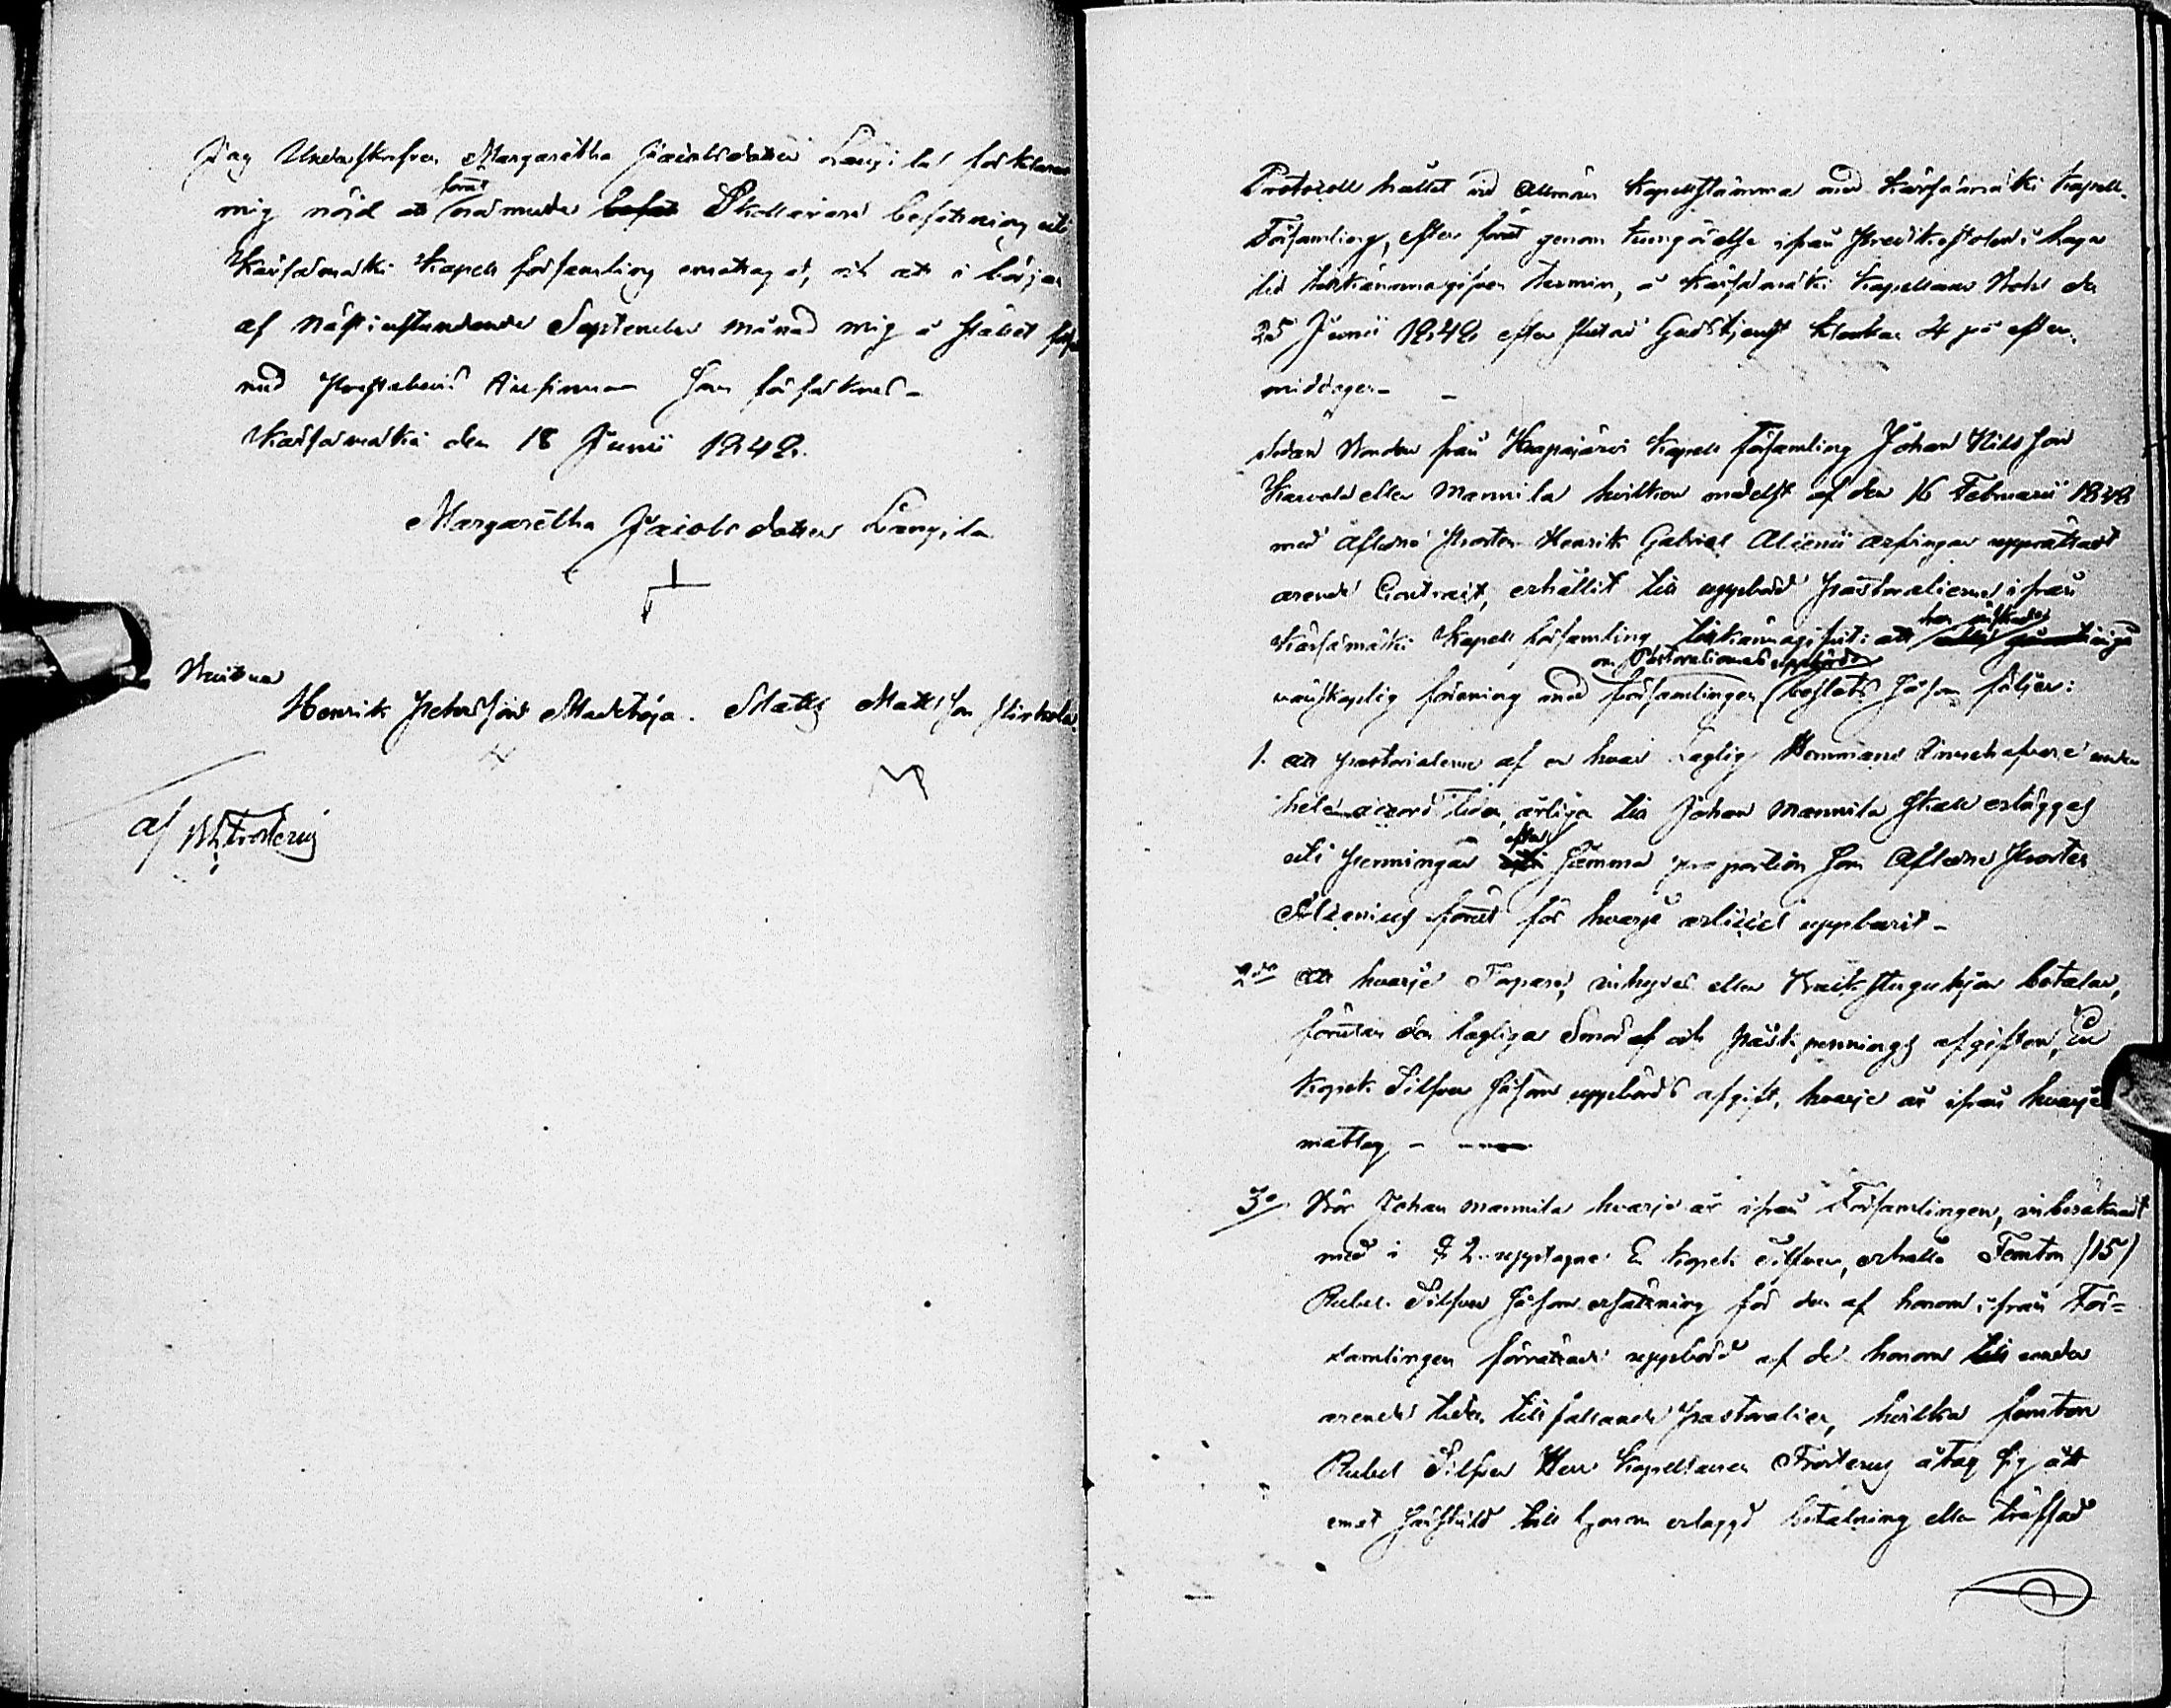 Jag Underskrefven Margaretha Jacobsdotter Långila förklarar
mig nöjd att förut nämnde befat Skollärare befattning uti
Kärsämäki Kapell församling emottaget, och att i början
af nästinstundande September månad mig å stället
med Prestabevis som försäkras -
Kärsämäki den 18 Junii 1848.
Margaretha Jacobsdotter Långila
Vittna
Henrik Petersson Matts Mattsson
af Frosterus
Protocoll hållet vid Allmän Kapellstämma med Kärsämäki Kapell-
Församling, efter förut genom kungörelse ifrån Predikostolen i laga
tid tillkännagifven termin, å Kärsämäki Kapellans Bohl den
25 Junii 1848 efter slutad Gudstjenst klockan 4 på efter-
middagen -
sedan Bonden från Haapajärvi Kapell församling Johan Nilsson
Karvala eller Mannila hvilken medelst af den 16 Februarii 1848
med Aflidne Prosten Henrik Gabriel arfvingar upprättadt
arende Contract, erhållit till uppbörd pastoralierne ifrån
Kärsämäki Kapell församling tillkännagifvit: att han önskade
om Pastoraliernas uppbörd
vänskaplig förening med församlingen beslöts såsom följer:
1. att pastoralierne af en hvar Laglig Hemmans Innehafvare under
hela accord tiden, årligen till Johan Mannila skall erläggas
uti penningar efter samma proportion som Aflidne Prosten
förut för hvarje artikel uppburit -
2do att hvarje Torpare, inhyses eller Backstuguhjon betalar,
förutan den lagliga och Påsk pennings afgiften, En
Kopek Silfver såsom uppbörds afgift, hvarje år ifrån hvarje
matlag -
3o Bör Johan Mannila hvarje år ifrån Församlingen, inberäknadt
med i § 2 upptagne En kopek Silfver, erhålla Femton (15)
Rubel Silfver såsom ersättning för den af honom ifrån För=
samlingen förrättade uppbörd af de honom till under
arende tiden tillfallande pastoralier, hvilka femton
Rubel Silfver Herr Kapellanen Frosterus åtog sig att
emot till honom erlagd betalning eller träffad